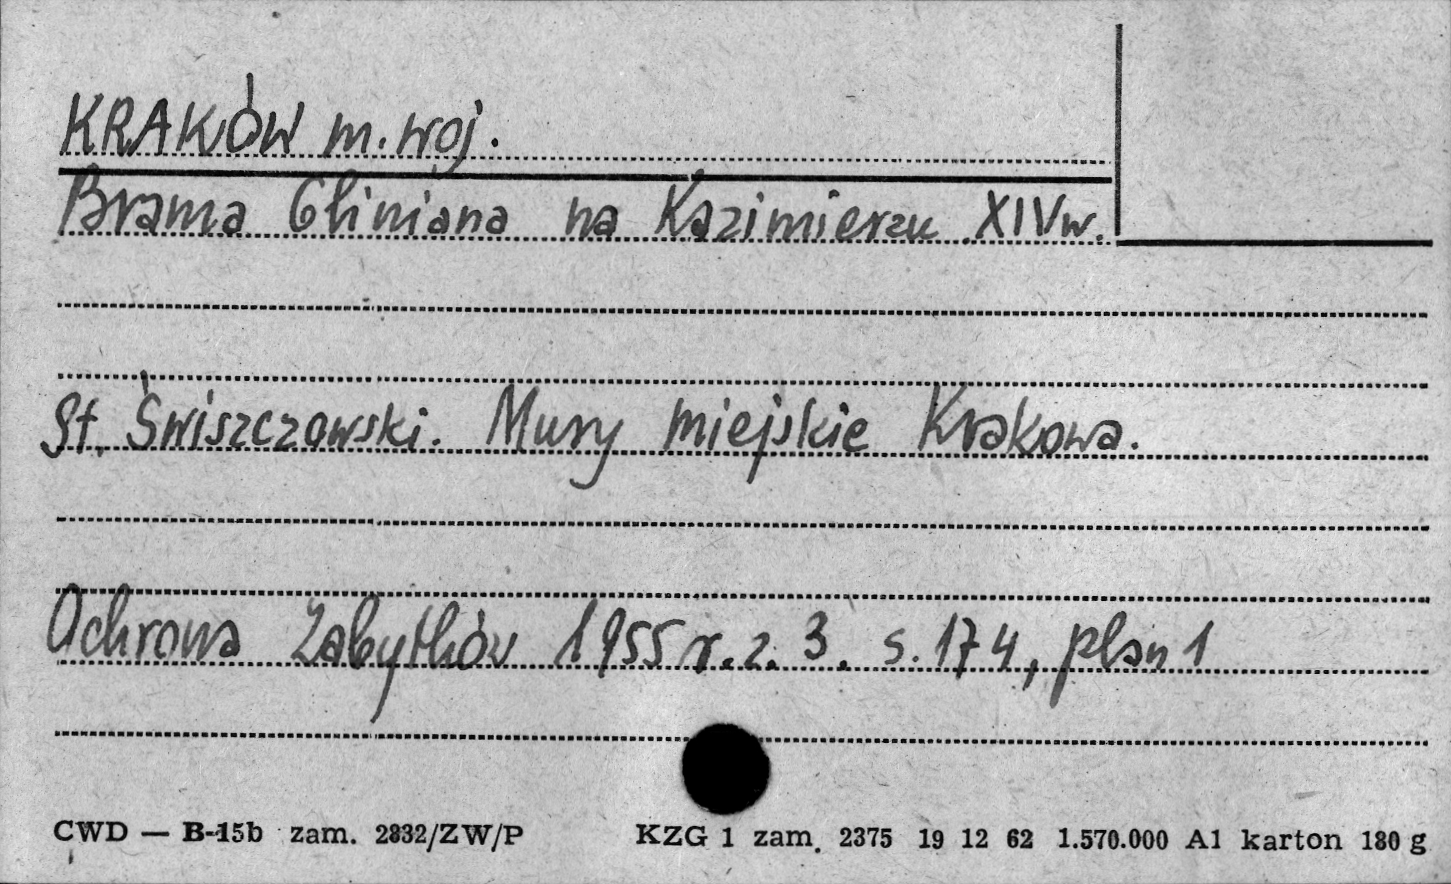 KRAKÓW m. woj.
Brama Gliniana na Kazimierzu XIV w.
St. Świszczowski. Mury miejskie Krakowa.
Ochrona Zabytków 1955 r. z. 3. s. 174, plan 1
CWD — B-15b zam. 2832/ZW/P KZG 1 zam. 2375 19 12 62 1.570.000 A1 karton 180 g